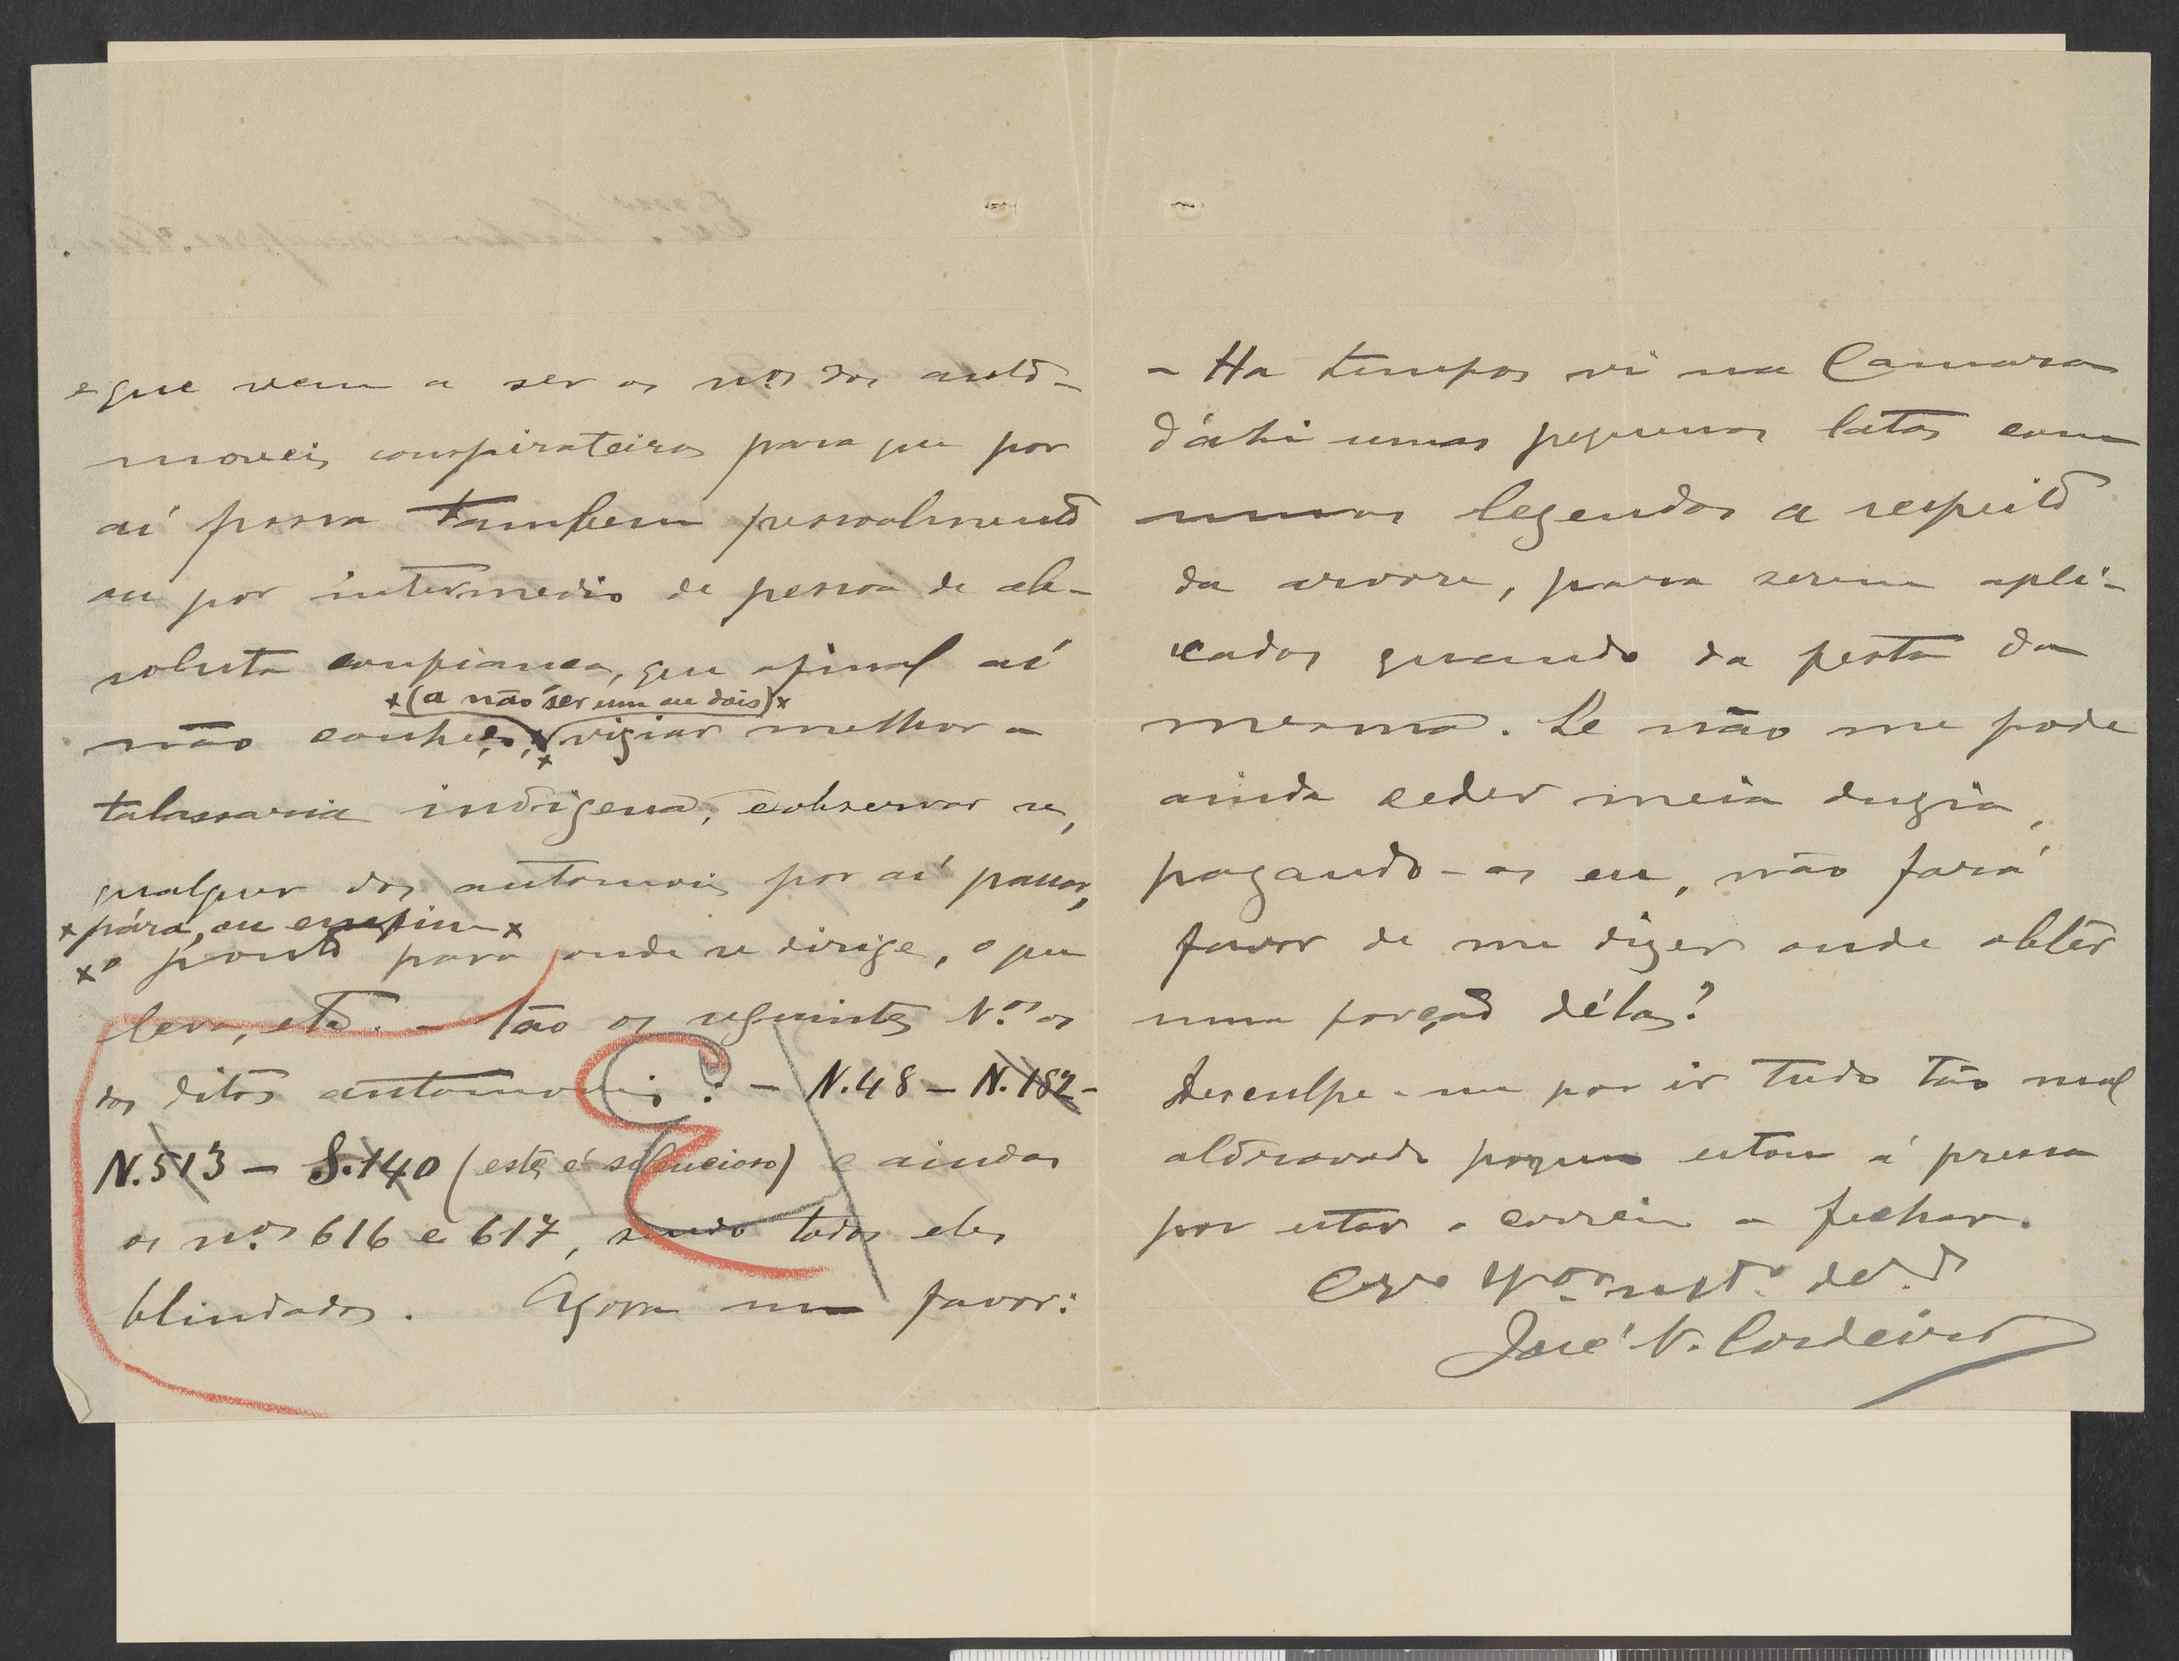 e que vem a ser os nos. dos auto-
moveis conspirateiros para que por
aí possa tambem pessoalmente
ou por intermedio de pessoa de ab-
soluta confiança, que afinal aí
x(a não ser um ou dois)x
não conheço, x vigiar melhor a
talassaria indigena, e observar se,
qualquer dos automoveis por aí passar,
x pára, ou emfim x
x o ponto para onde se dirige, o que
leva, etc. - São os seguintes N.os os
dos ditos automoveis: - N.48 - N.182 -
N.513 - S.140 (este é silencioso) e ainda
os n.os 616 e 617, sendo todos eles
blindados. Agora um favor:
- Ha tempos vi na Camara
d'ahi umas pequenas latas com
umas legendas a respeito
da arvore, para serem apli-
cadas quando da festa da
mesma. Se não me pode
ainda ceder meia duzia,
pagando-as eu, não fará
favor de me dizer onde obter
uma porção délas?
Desculpe-me por ir tudo tão mal
aldravado porque estou á pressa
por estar o correio a fechar.
José N. Cordeiro